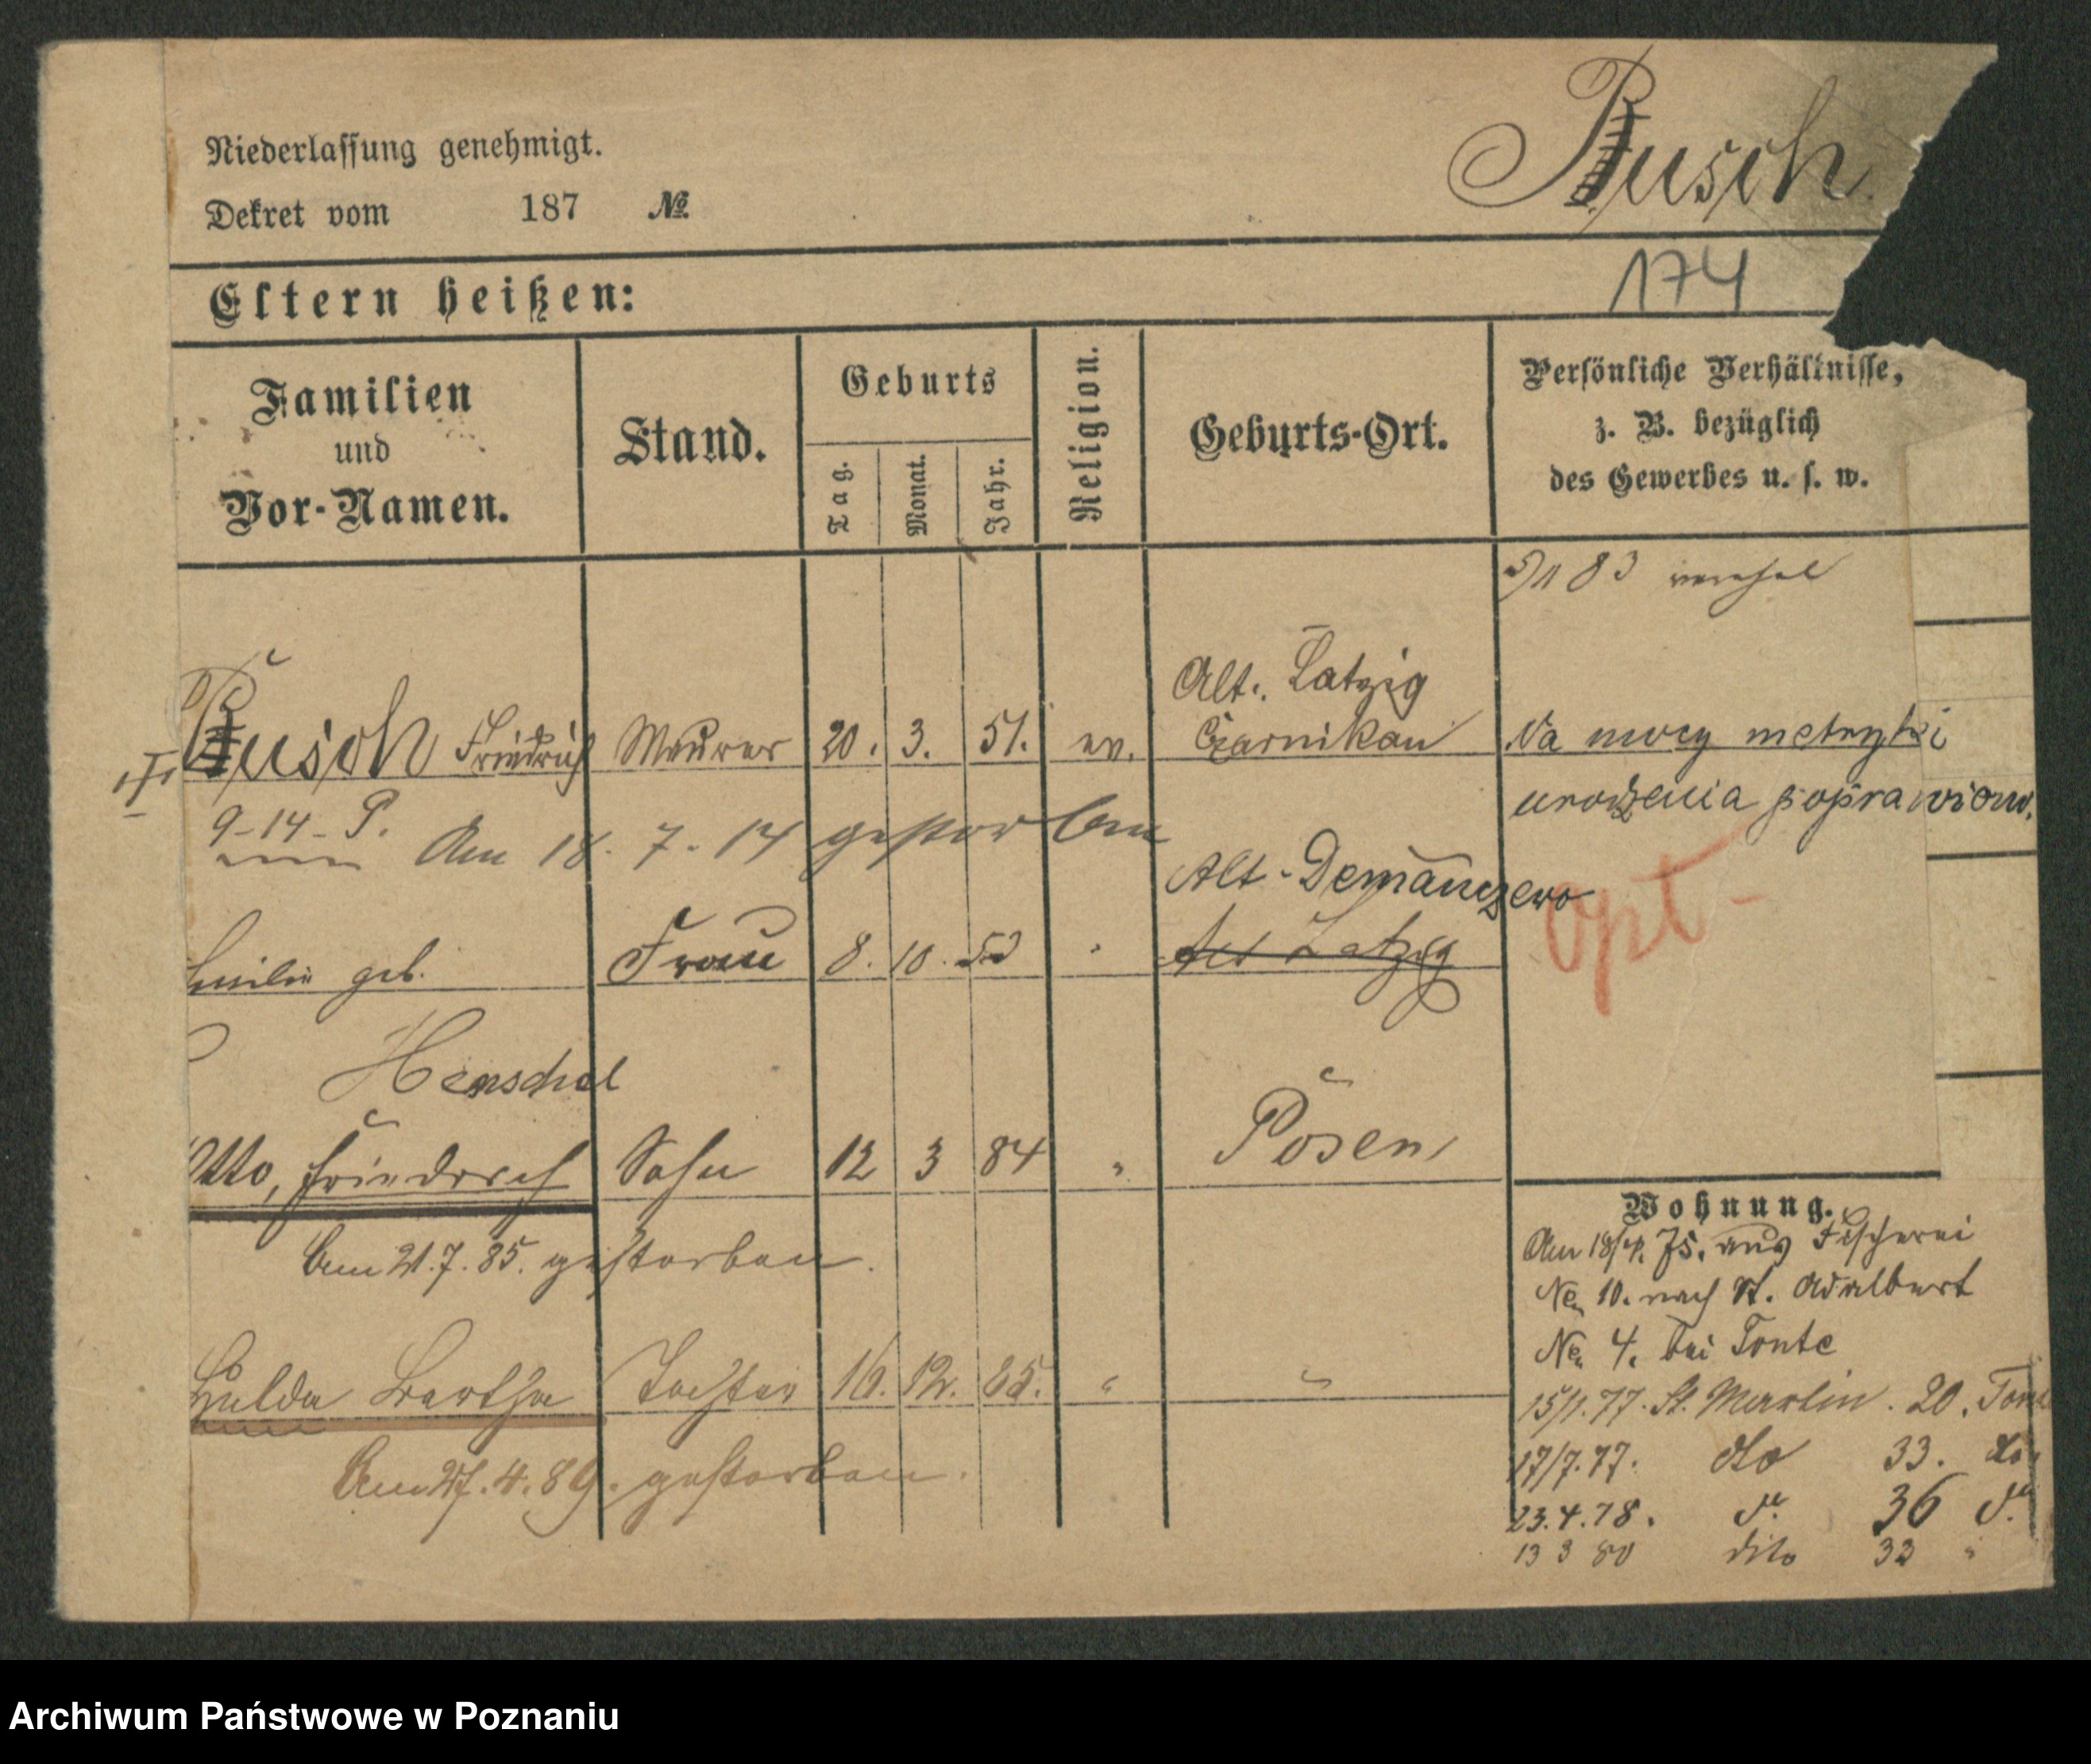 Busch
Niederlassung genehmigt.
Dekret vom 187 №
174
Eltern heißen:
Familien und Vor-Namen.
Stand.
Geburts
Tag.
Monat.
Jahr.
Religion.
Geburts-Ort.
Persönliche Verhältnisse,
z. B. bezüglich
des Gewerbes u. s. w.
83
Alt. Latzig
Busch Friedrich Maurer 20. 3. 51. ev. Czarnikau Na mocy metryki
urodzenia poprawiono.
9-14- P. Am 18. 7. 14 gestorben
Alt-Demanczewo
opt-
Emilie geb. Frau 8. 10. 53 Alt Latzig
Henschel
Otto, Friedrich Sohn 12 3 84 " Posen
Am 21. 7. 85. gestorben.
Hulda Bertha Tochter 16. 12. 85. " "
Am 27. 4. 89. gestorben.
Wohnung.
Am 18/4. 75. aus Fischerei
No 10. nach St. Adalbert
No 4. bei Tonte
15/1. 77. St. Martin. 20.
17/7. 77. dto 33. do.
23. 4. 78. do 36 do
13 3 80 dito 33 "
Archiwum Państwowe w Poznaniu